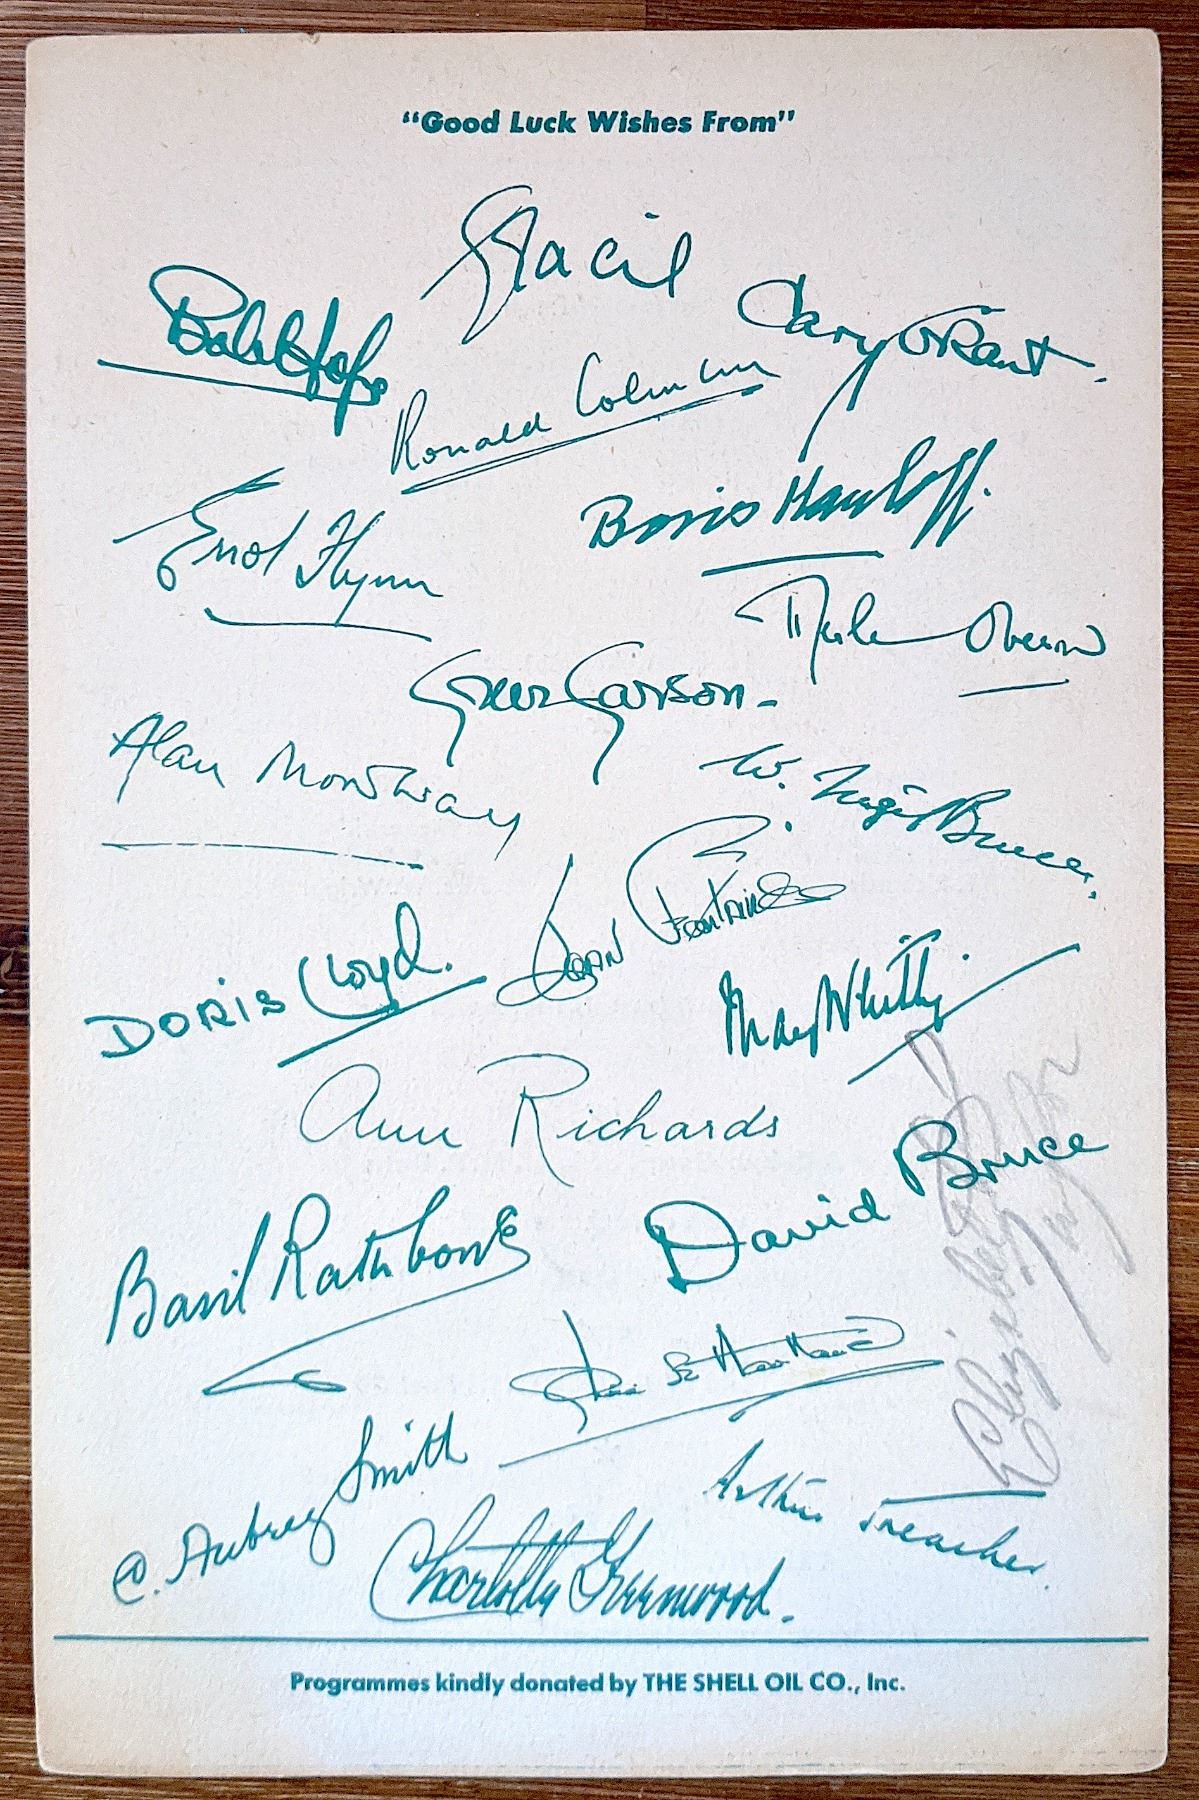 "Good Luck Wishes From"
Gracie
Bob Hope
Cary Grant.
Ronald Colman
Boris Karloff.
Errol Flynn
Merle Oberon
Greer Garson.
Alan Mowbray
W. Nigel Bruce.
Joan Fontaine
DORIS Lloyd.
May Whitty.
Ann Richards
David Bruce
Basil Rathbone
Elizabeth
Taylor
C. Aubrey Smith
Arthur Treacher.
Charlotte Greenwood.
Programmes kindly donated by THE SHELL OIL CO., Inc.